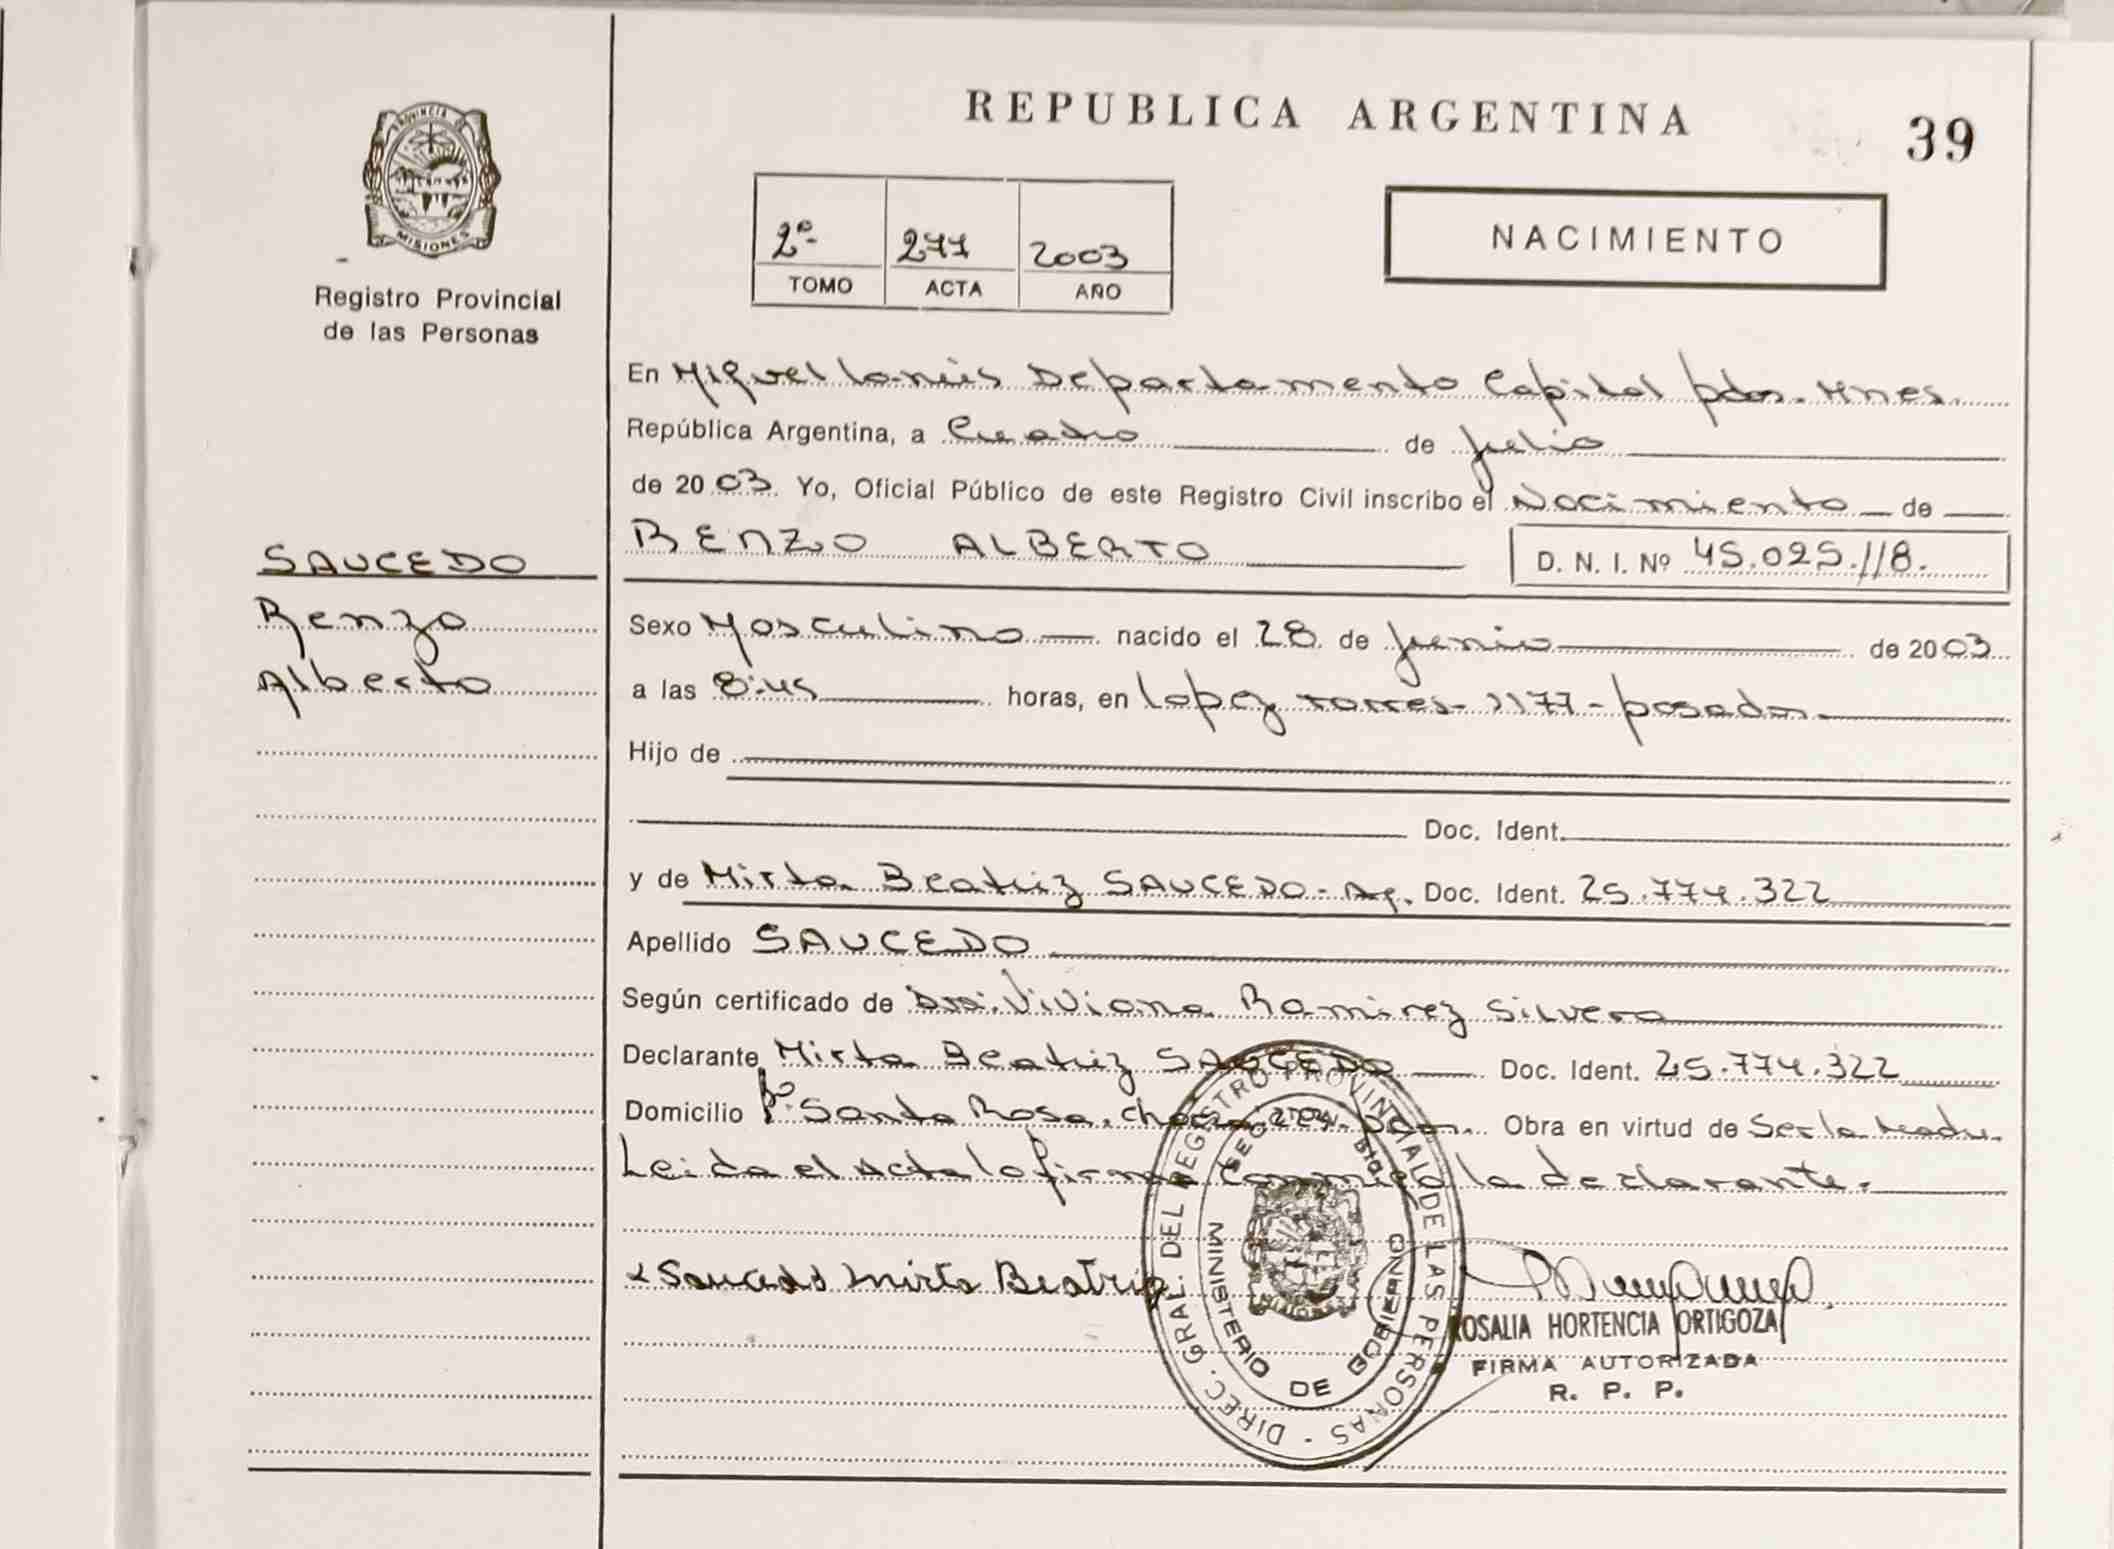 REPUBLICA ARGENTINA
39
PROVINCIA DE
MISIONES
Registro Provincial
de las Personas
2º 277 2003
TOMO ACTA AÑO
NACIMIENTO
En Miguel Lanús Departamento Capital pdas. Mnes.
República Argentina, a Cuatro de Julio
de 2003 Yo, Oficial Público de este Registro Civil inscribo el Nacimiento de
SAUCEDO
Renzo
Alberto
RENZO ALBERTO D. N. I. Nº 45.025.118.
Sexo Masculino nacido el 28 de Junio de 2003
a las 8:45 horas, en Lopez Torres 1177 - posadas
Hijo de
Doc. Ident.
y de Mirta Beatriz SAUCEDO - Ag. Doc. Ident. 25.774.322
Apellido SAUCEDO
Según certificado de Dra. Viviana Ramirez Silvero
Declarante Mirta Beatriz SAUCEDO Doc. Ident. 25.774.322
Domicilio Bº. Santa Rosa, chacra pdas. Obra en virtud de Ser la Madre
Leida el Acta la firma conmigo la declarante.
Saucedo Mirta Beatriz
DIREC. GRAL. DEL REGISTRO PROVINCIAL DE LAS PERSONAS
MINISTERIO DE GOBIERNO
ROSALIA HORTENCIA ORTIGOZA
FIRMA AUTORIZADA
R. P. P.